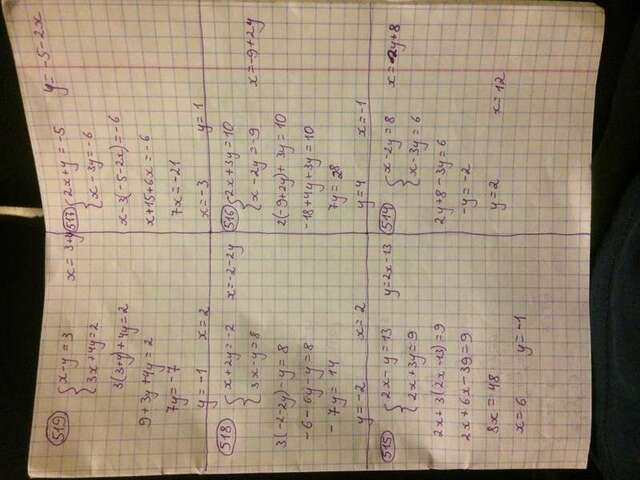 519 x-y=3 x=3+y
3x+4y=2
3(3+y)+4y=2
9+3y+4y=2
7y=-7
y=-1 x=2
517 2x+y=-5 y=-5-2x
x-3y=-6
x-3(-5-2x)=-6
x+15+6x=-6
7x=-21
x=-3 y=1
518 x+2y=-2 x=-2-2y
3x-y=8
3(-2-2y)-y=8
-6-6y-y=8
-7y=14
y=-2 x=2
516 2x+3y=10
x-2y=-9 x=-9+2y
2(-9+2y)+3y=10
-18+4y+3y=10
7y=28
y=4 x=-1
515 2x-y=13 y=2x-13
2x+3y=9
2x+3(2x-13)=9
2x+6x-39=9
8x=48
x=6 y=-1
514 x-2y=8 x=2y+8
x-3y=6
2y+8-3y=6
-y=-2
y=2 x=12